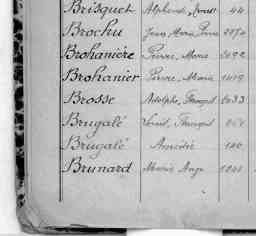 Brisquet Alphonse, Ernest 44
Brochu Jean, Marie, Pierre
Brohanière Pierre, Marie 2092
Brohanier Pierre, Marie
Brosse Adolphe, François 2033
Brugalé Louis, François
Brugalé Amédée
Brunard Marie Ange